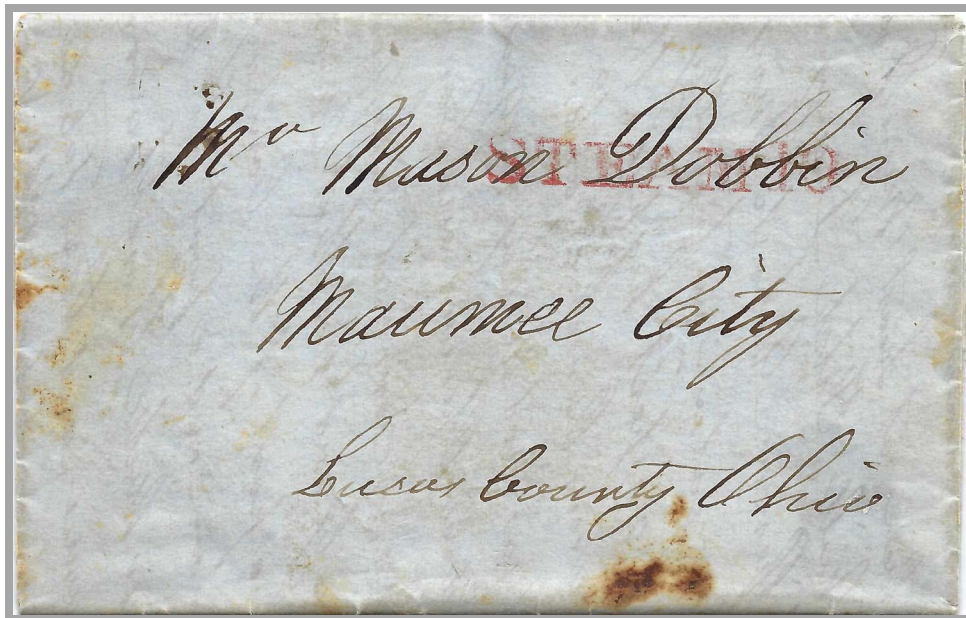 Mr Mason Dobbin
STEAM
Maumee City
Lucas County Ohio